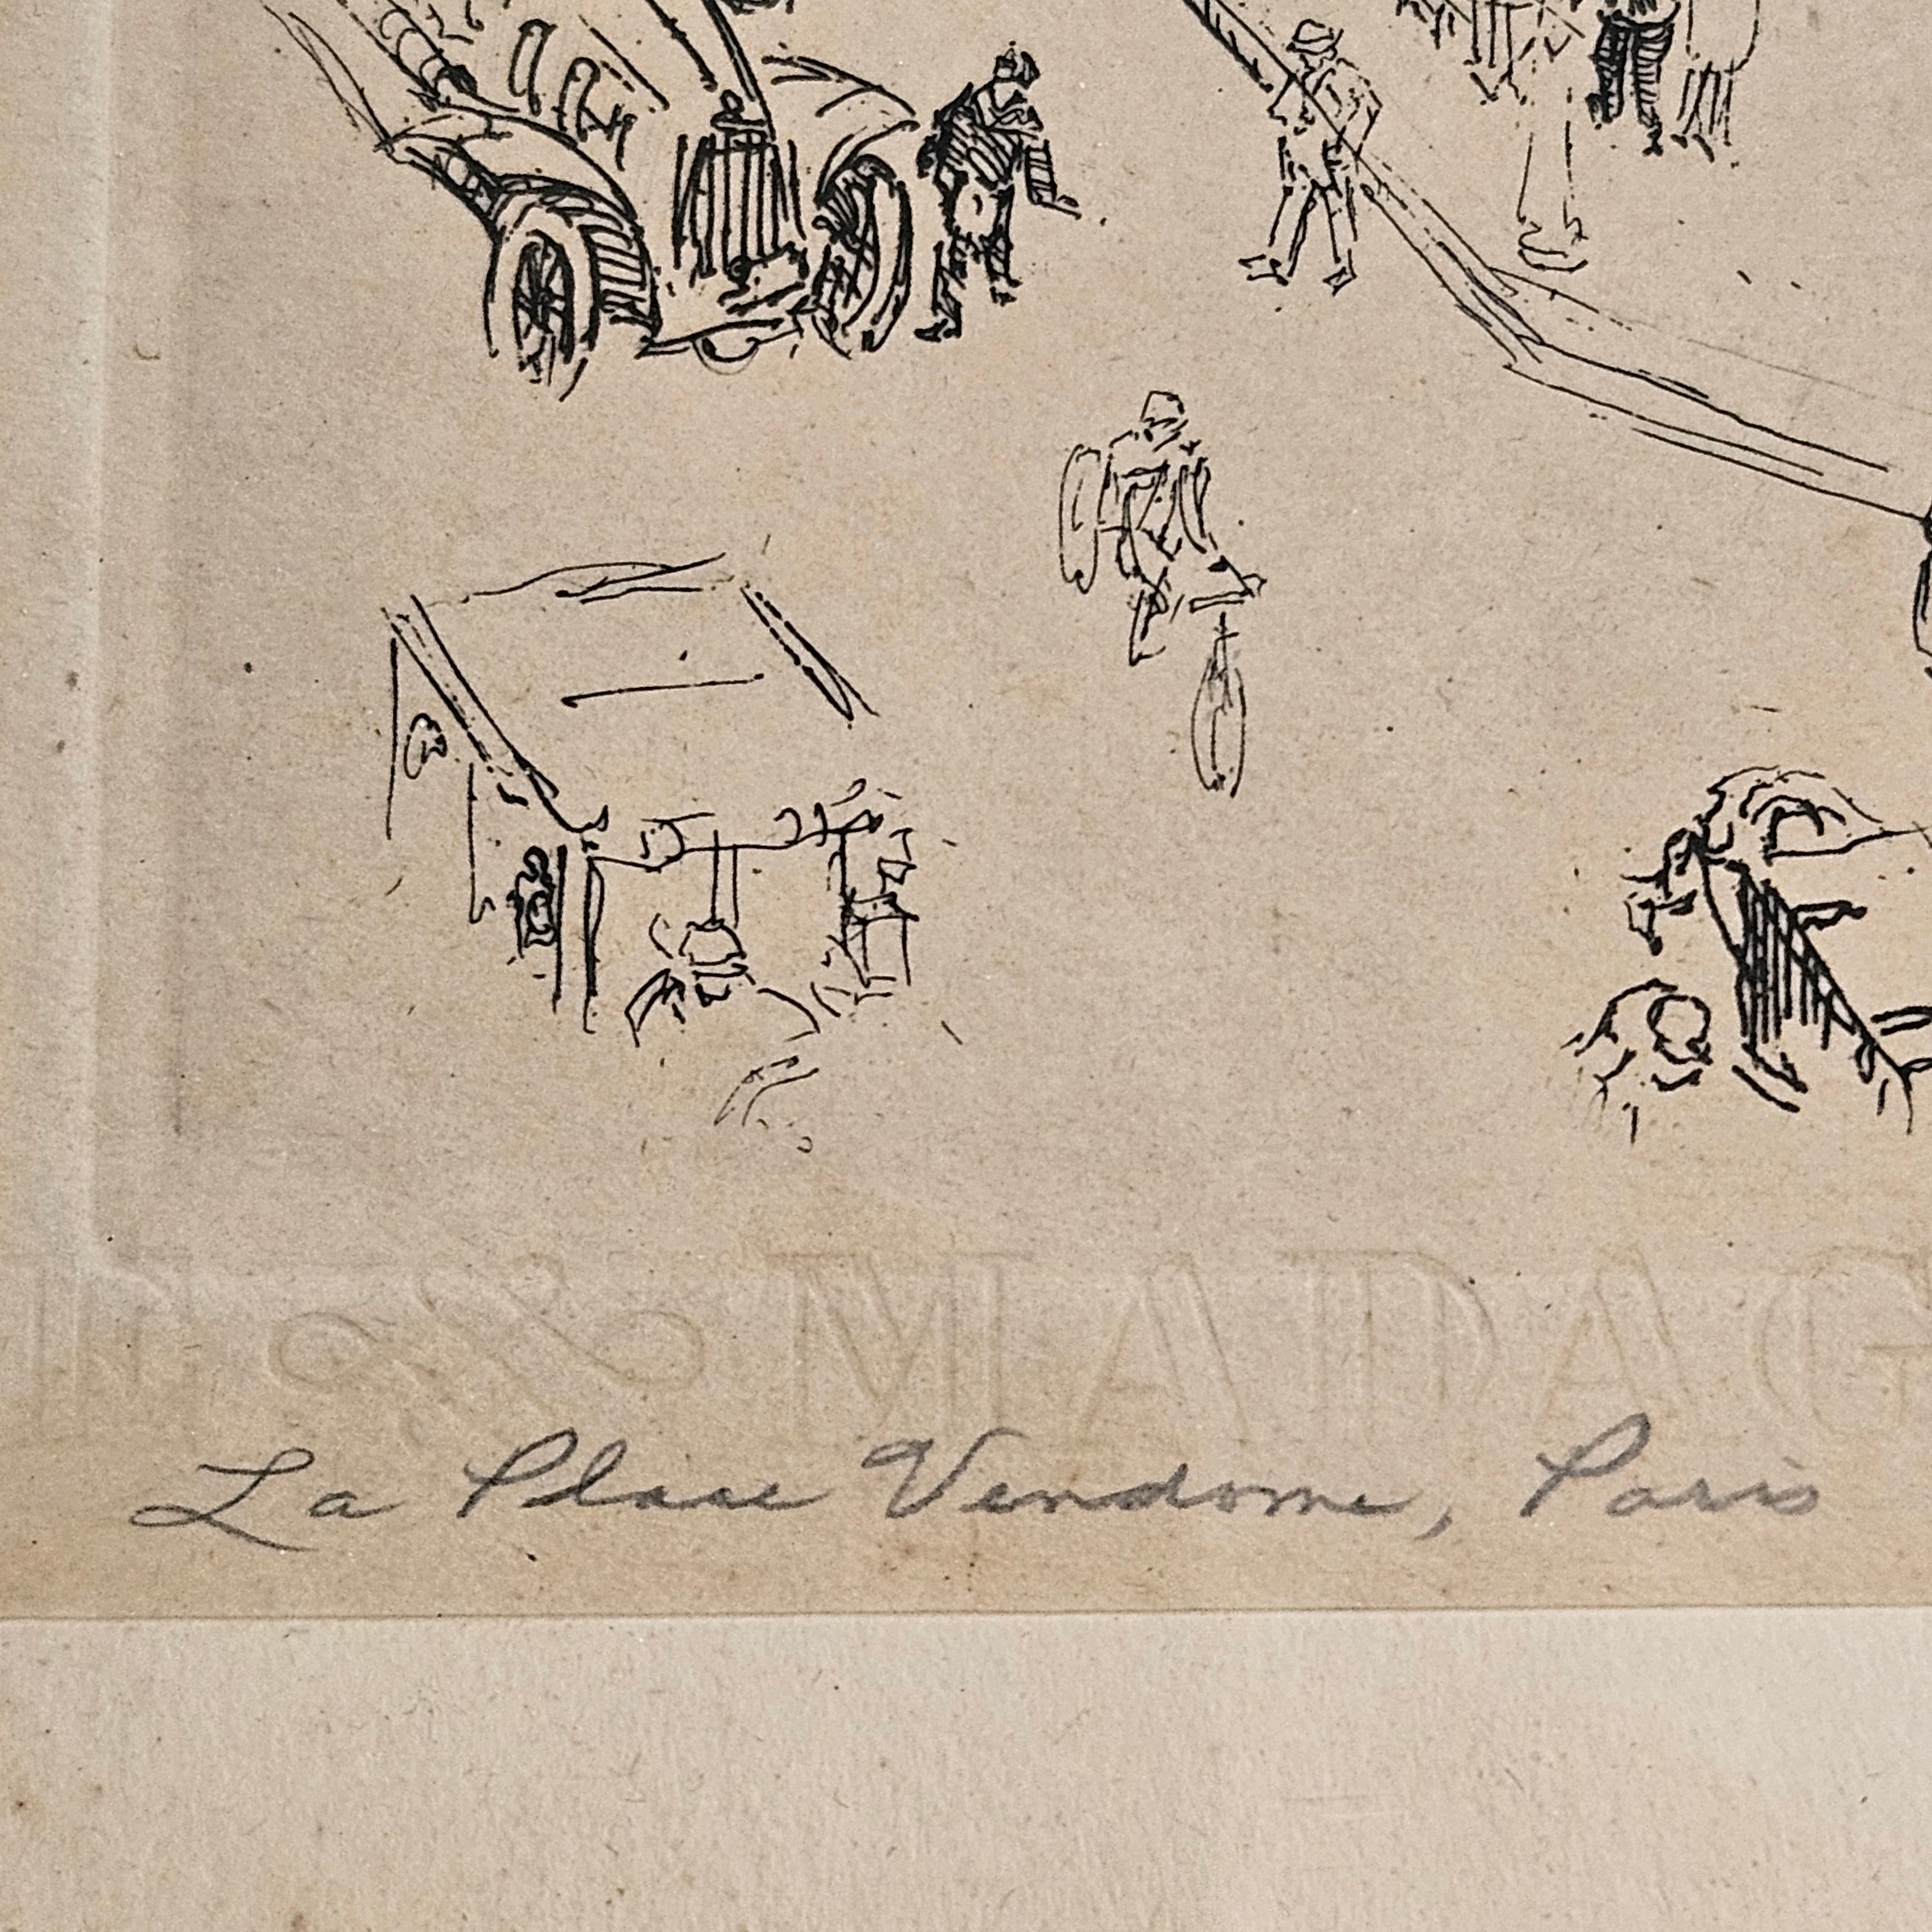 & MADAG
La Place Vendome, Paris